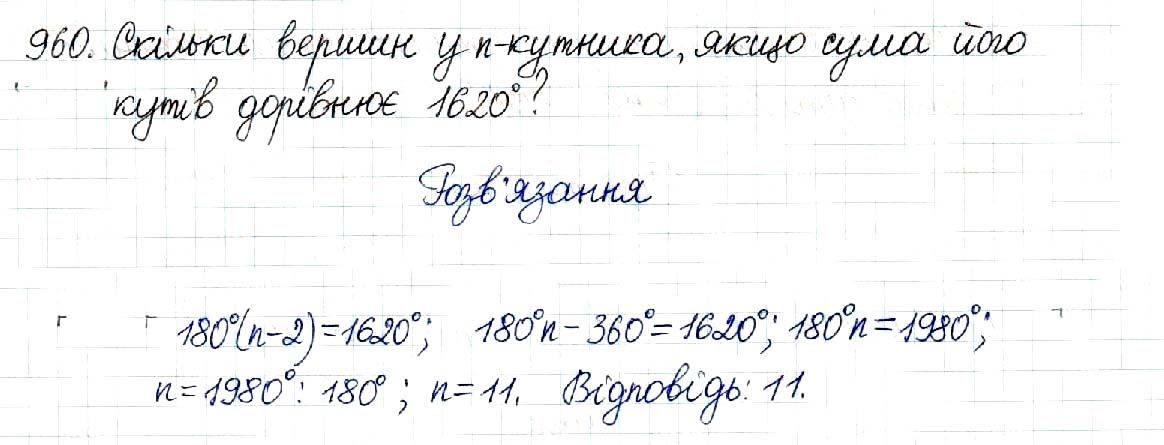 960. Скільки вершин у n-кутника, якщо сума його
кутів дорівнює 1620°?
Розв'язання
180°(n-2)=1620°; 180°n-360°=1620°; 180°n=1980°;
n=1980°:180°; n=11. Відповідь: 11.